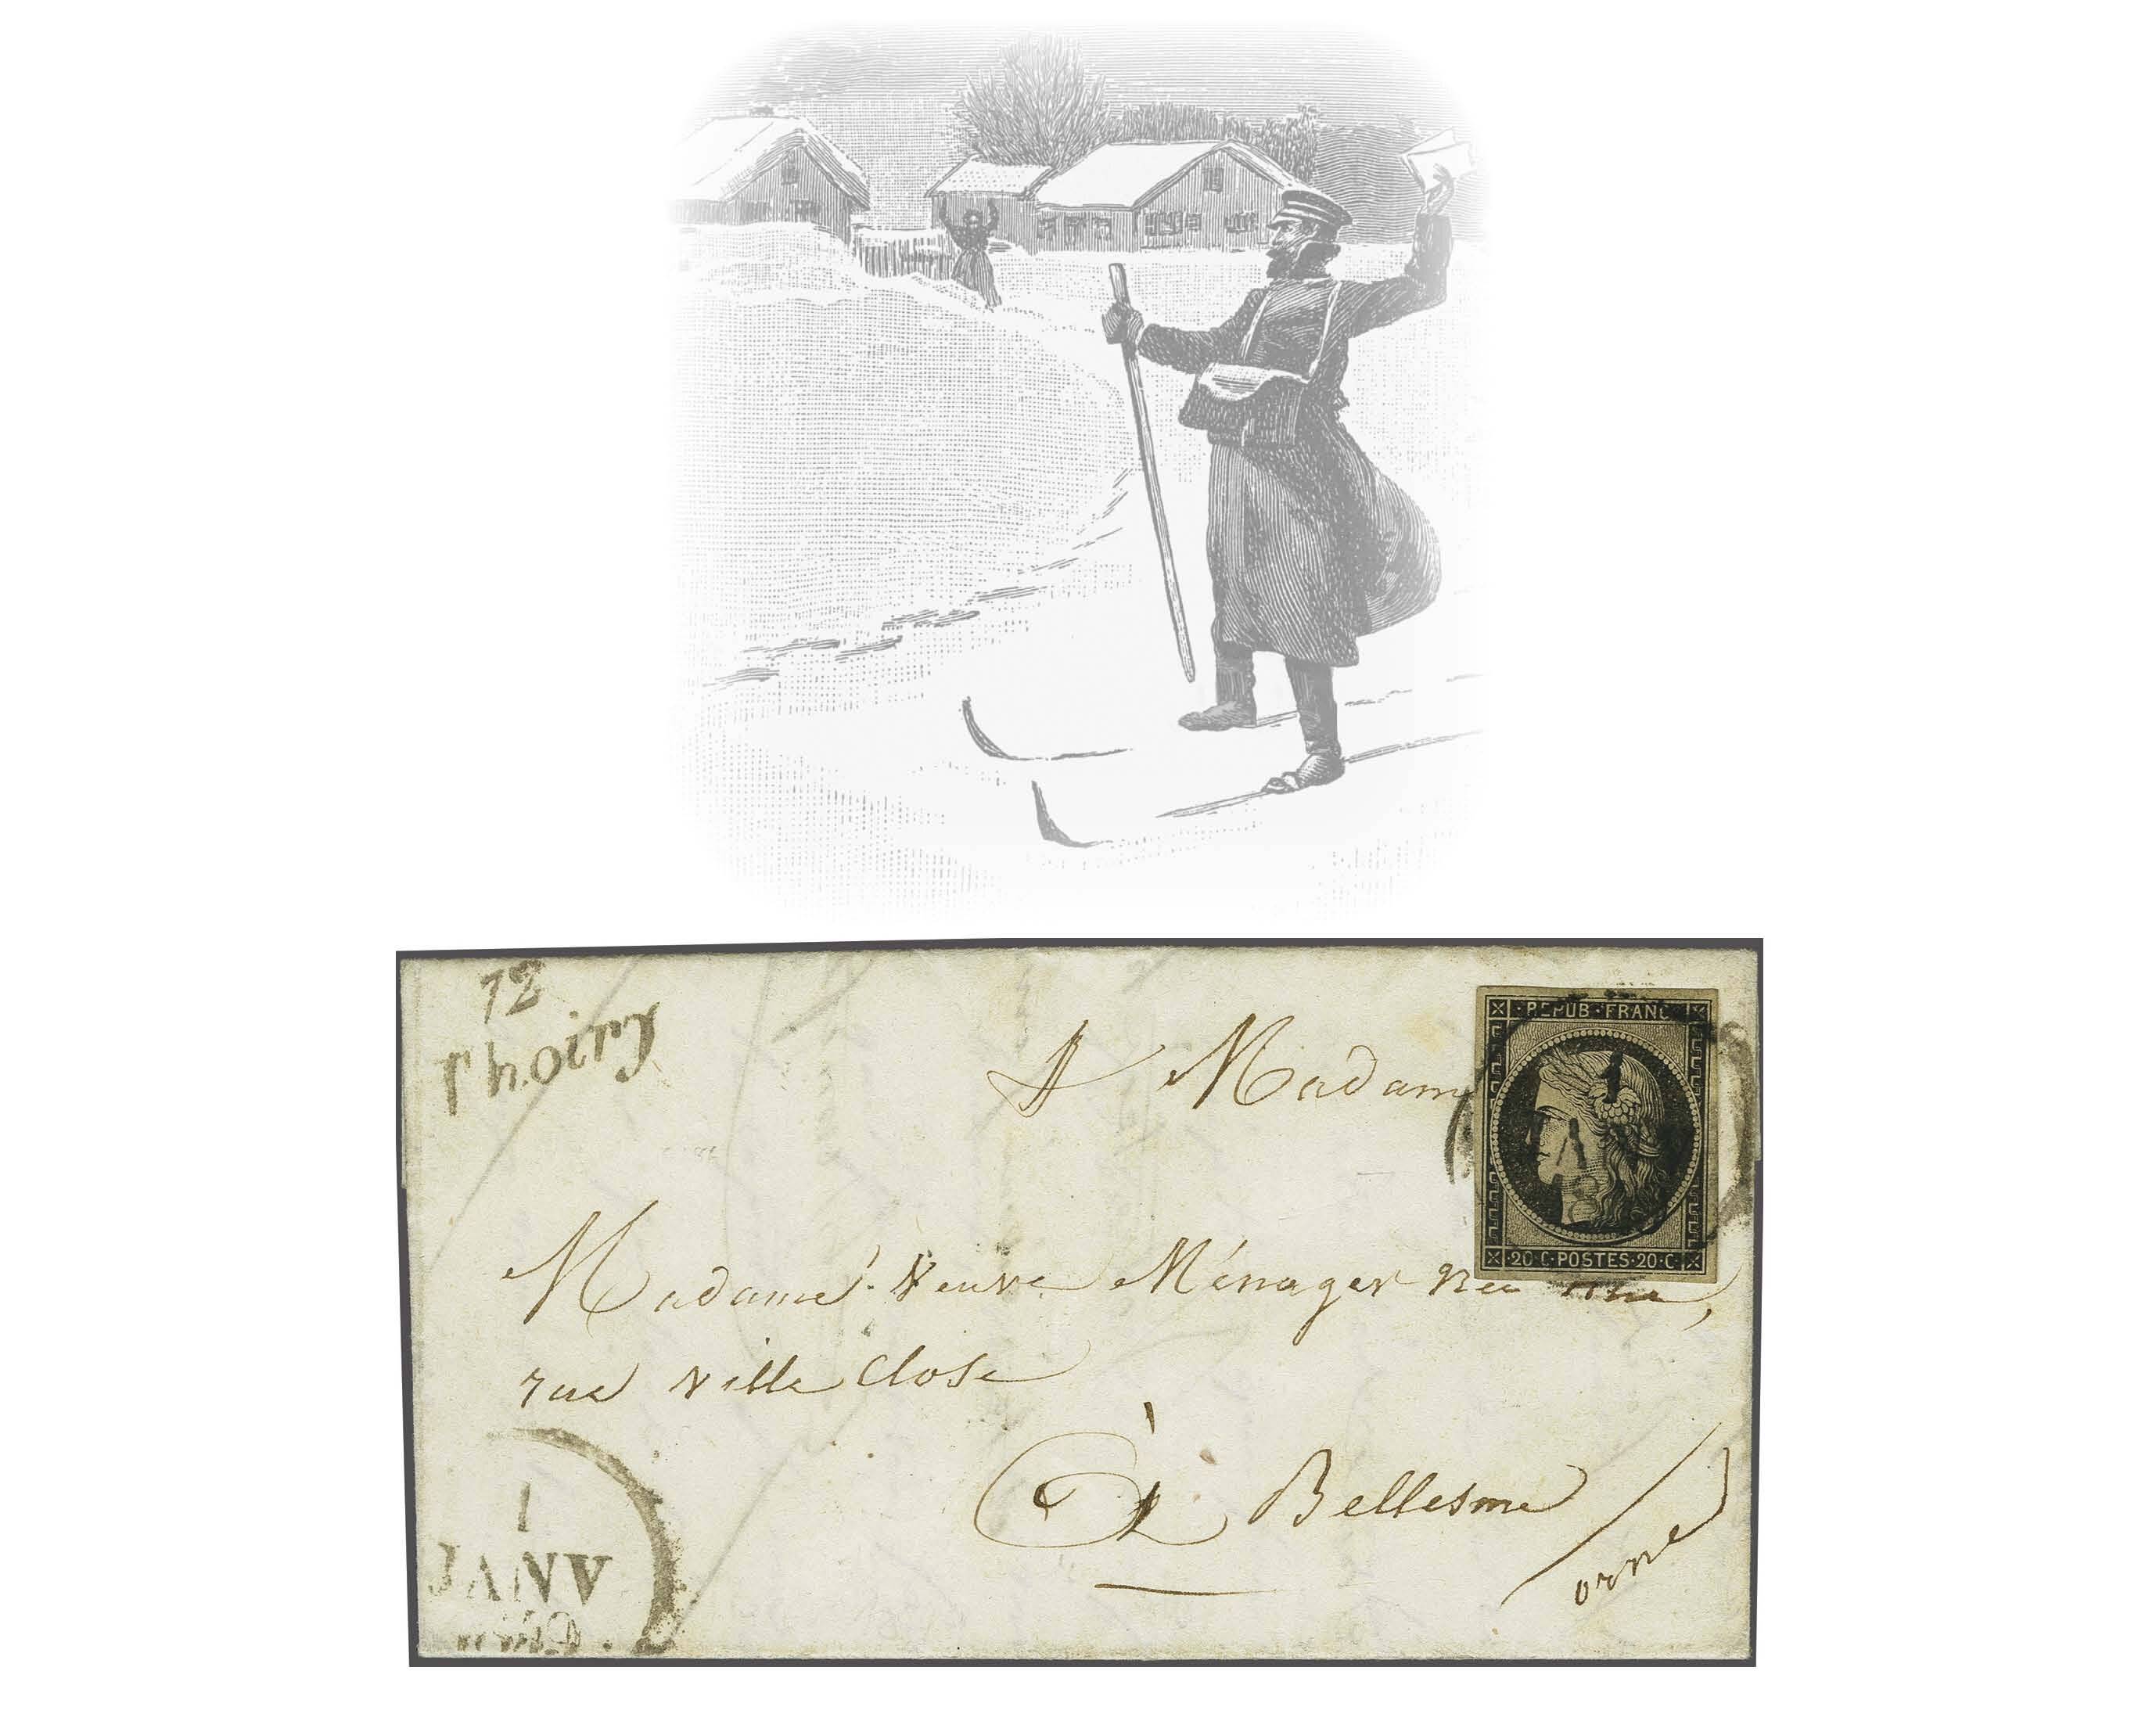 72
Thoiry
A Madam
REPUB·FRANC
1
20·C·POSTES·20·C
Madame Veuve Ménager née
rue Ville Close
À Bellesme
orne
1
JANV